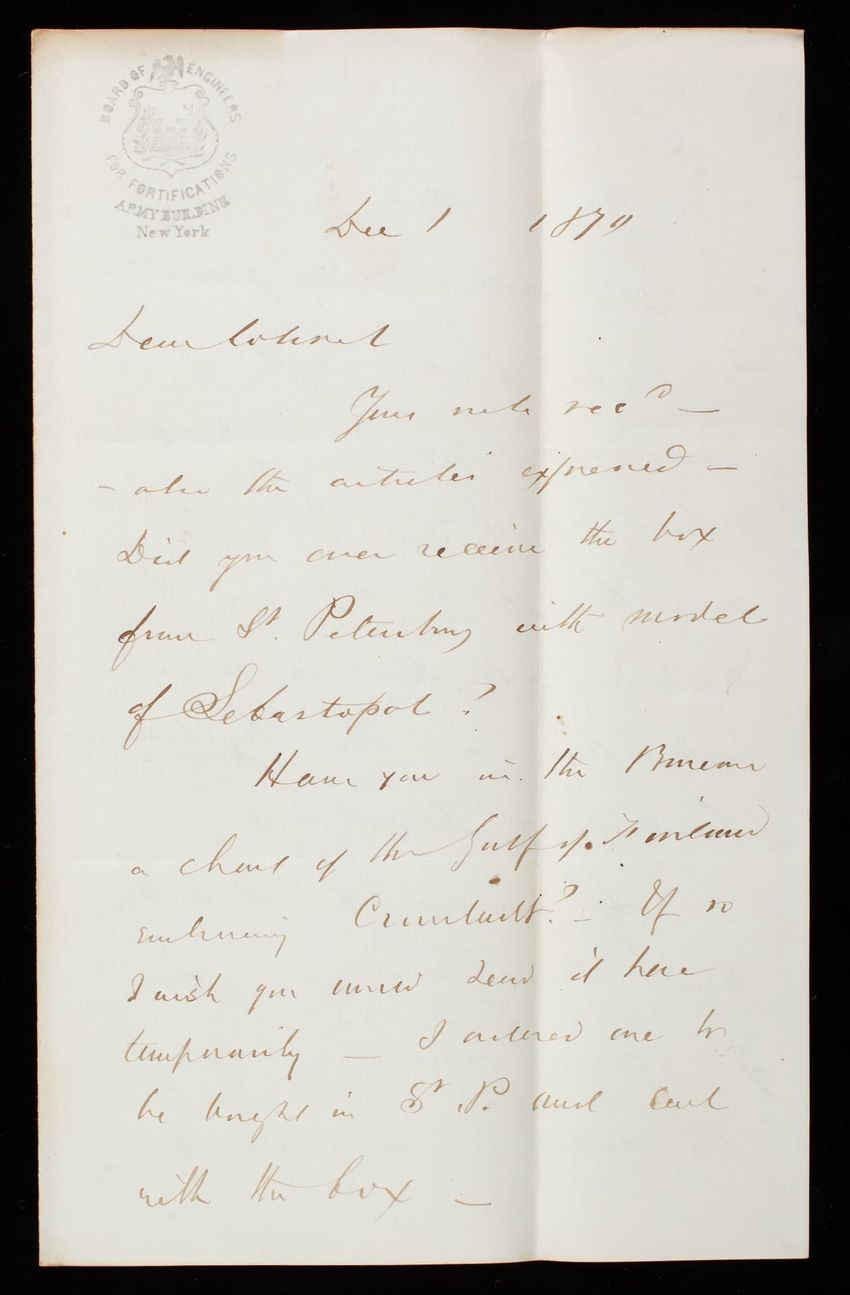 BOARD OF ENGINEERS
FOR FORTIFICATIONS
ARMY BUILDING
New York
Dec 1 1879
Dear Colonel
Your note recd —
- also the articles expressed —
Did you ever receive the box
from St. Petersburg with model
of Sebastopol ?
Have you in the Bureau
a chart of the Gulf of Finland
embracing Cronstadt? - If so
I wish you would send it here
temporarily — I ordered one to
be bought in St P. and sent
with the box —